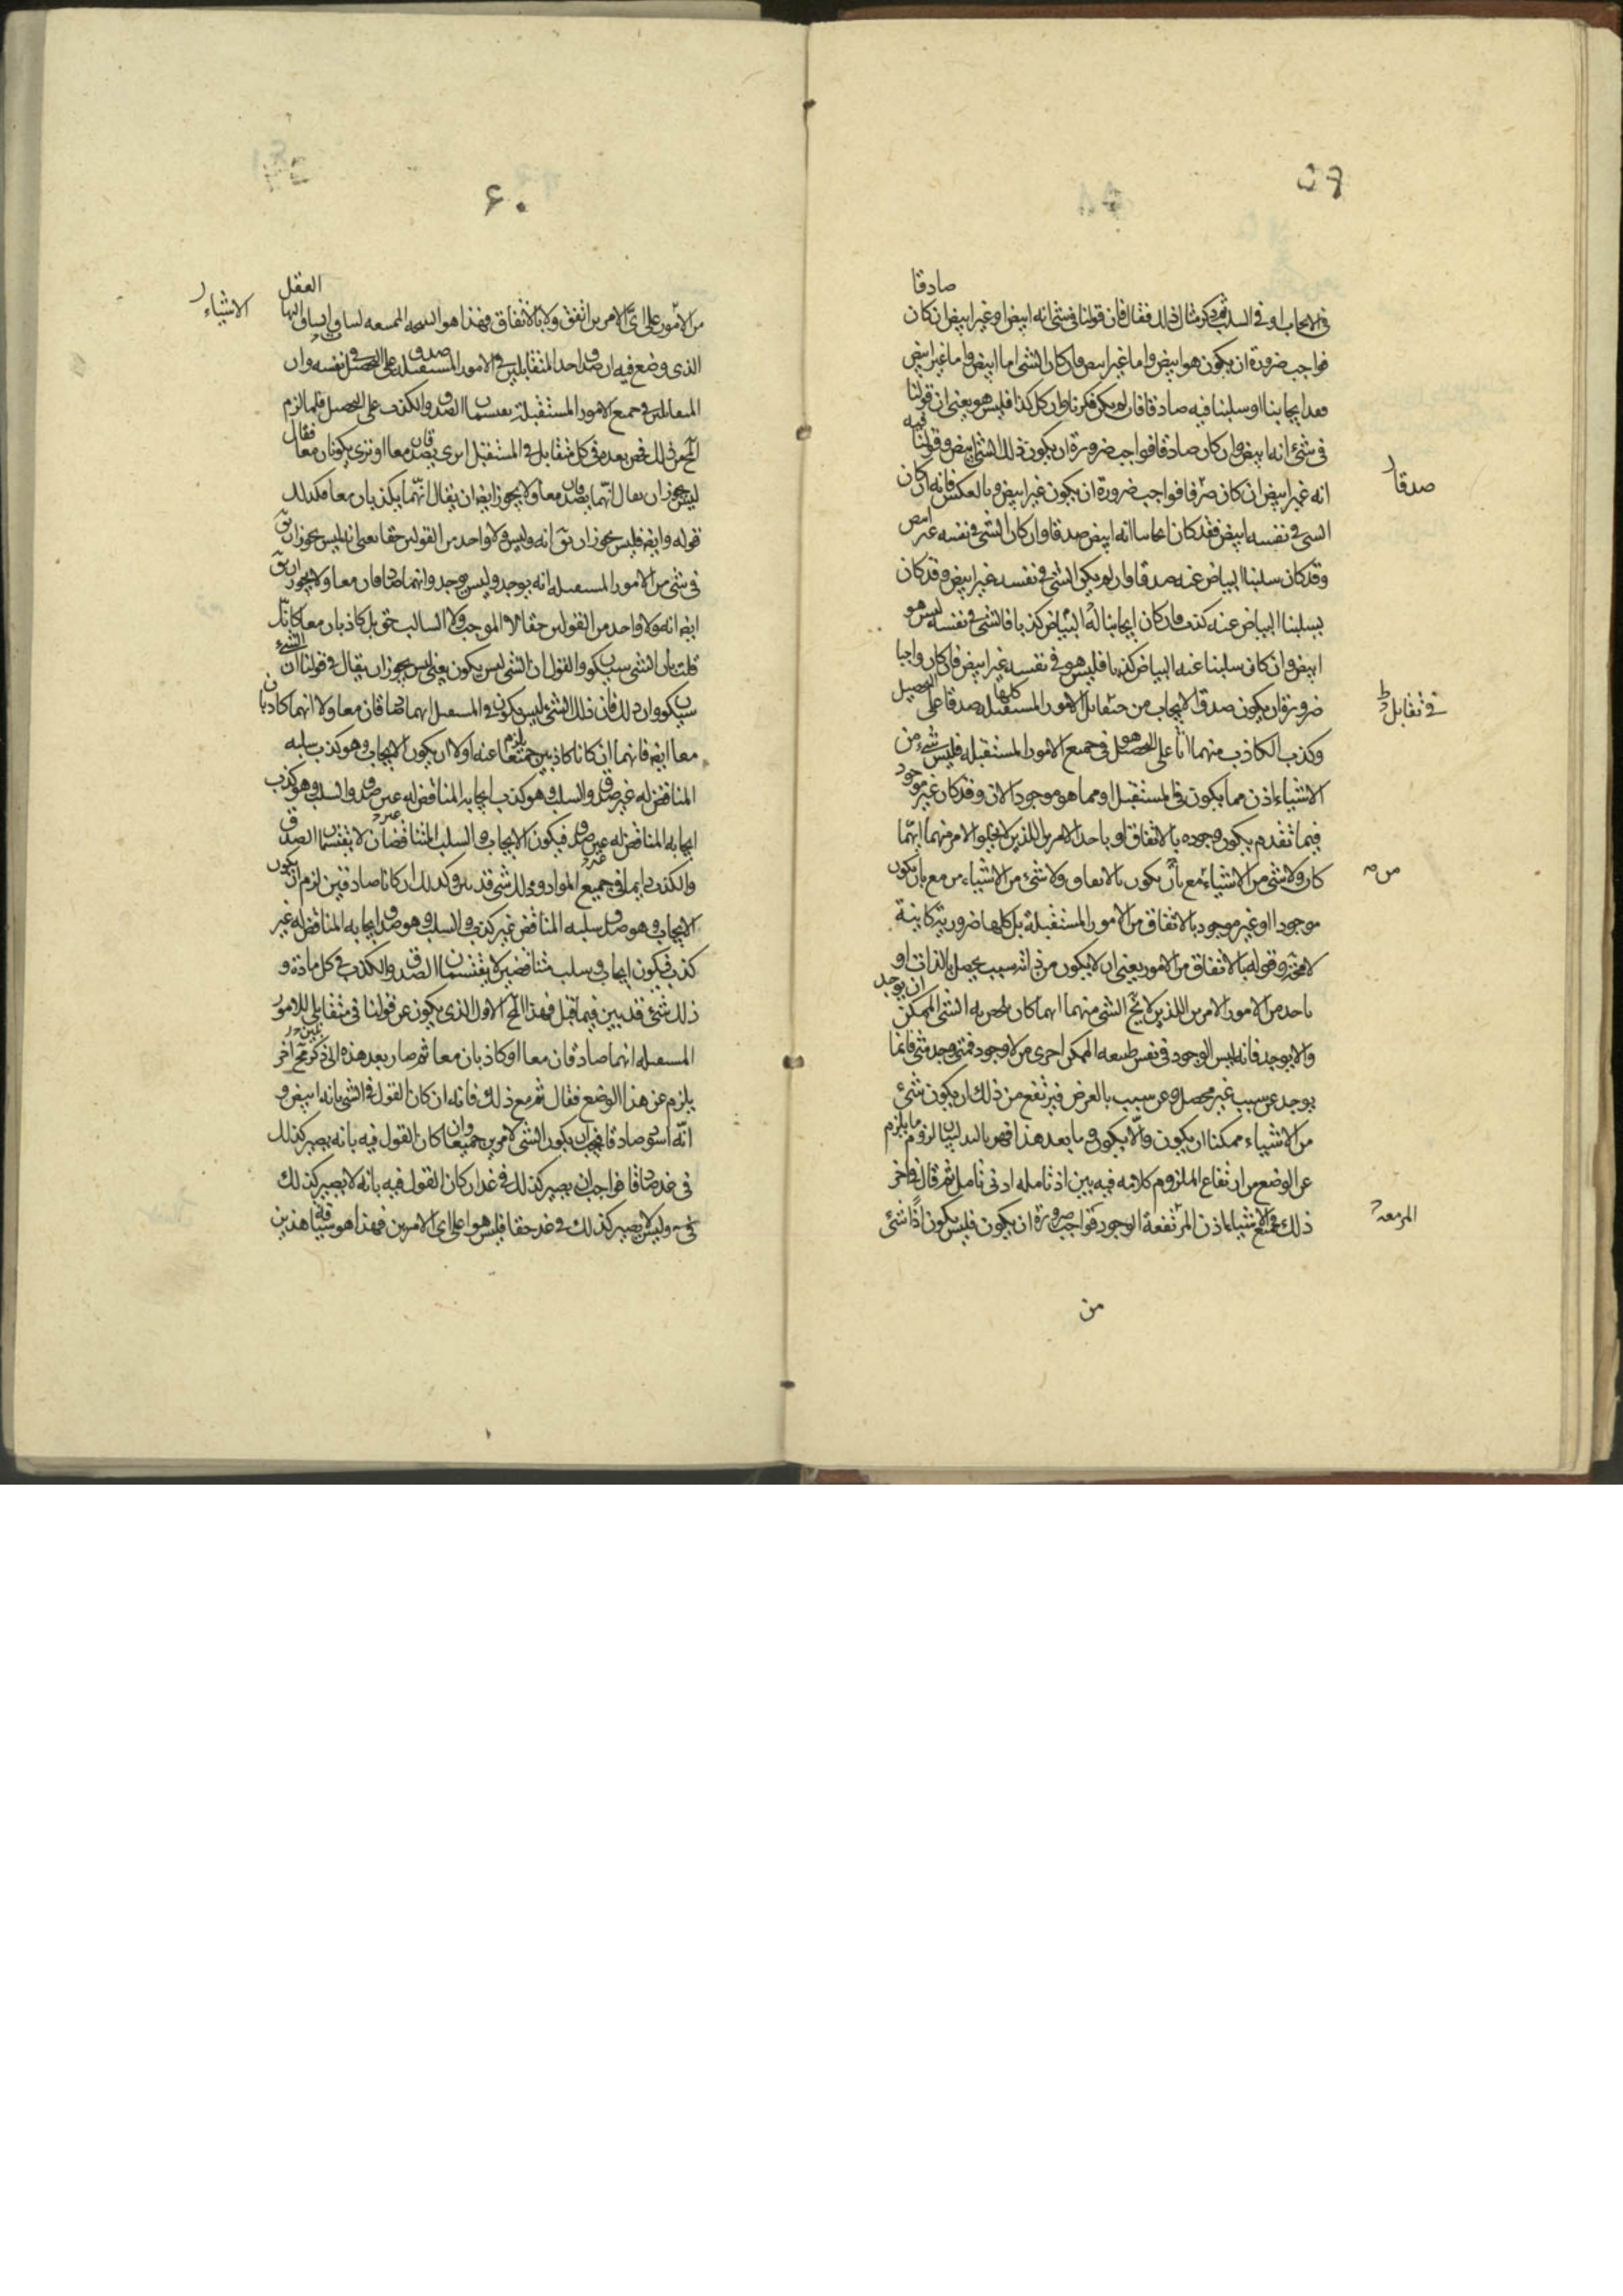 ٥٩
صادقا
في الايجاب او في السلب ثم ذكر مثال ذلك فقال فان قولنا في شئ انه ابيض او غير ابيض ان كان
فواجب ضرورة ان يكون هو ابيض واما غير ابيض وان كان الشئ اما ابيض واما غير ابيض
فقد ايجابنا او سلبنا فيه صادقا فان لم يكن فكرنا وان كل كذا فليس هو يعني ان قولنا
فيه
في شئ انه ابيض وان كان صادقا فواجب ضرورة ان يكون ذلك الشئ ابيض وقولنا
انه غير ابيض ان كان صدقا فواجب ضرورة ان يكون غير ابيض وبالعكس فانه ان كان
صدقا
الشئ في نفسه ابيض فقد كان ايجابنا انه ابيض صدقا وان كان الشئ في نفسه غير ابيض
وقد كان سلبنا البياض عنه صدقا وان لم يكن الشئ في نفسه غير ابيض وقد كان
بسلبنا البياض عنه كذب فان كان ايجابنا له البياض كذبا فالشئ في نفسه ليس هو
ابيض وان كان سلبنا عنه البياض كذبا فليس هو في نفسه غير ابيض فان كان واجبا
ضرورة ان يكون صدق الايجاب من متقابل الامور المستقبله كلها صدقا على التحصيل
في تقابل
وكذب الكاذب منهما اذا على التحصيل هو في جميع الامور المستقبله فليس شئ من
الاشياء اذن مما يكون في المستقبل ومما هو موجود الان وقد كان غير موجود
فيما تقدم يكون وجوده بالاتفاق او باحد الامرين اللذين لا يخلو الامر منهما ايهما
كان ولا شئ من الاشياء مع بان يكون بالاتفاق ولا شئ من الاشياء من مع بان يكون
موجودا او غير موجود بالاتفاق من الامور المستقبلة بل كلها ضرورية كاينة
لا محة وقوله بالاتفاق من الامور يعني ان لا يكون من ذاته سبب يحصل بالذات او
باحد من الامور الامرين اللذين لا يخ الشئ منهما ايهما كان يلحق به الشئ الممكن ان يوجد
والا يوجد فانه ليس الوجود في نفس طبيعه الممكن احرى من لا وجود فمتى وجد شئ فانما
يوجد عن سبب غير محصل وعن سبب بالعرض فيرتفع من ذلك ان يكون شئ
من الاشياء ممكنا ان يكون والا يكون وما بعد هذا فهو لزوم ما يلزم
عن الوضع من ارتفاع الملزوم كلامه فيه بين اذ تامله ادنى تامل ثم قال في اخر
ذلك فجميع الاشياء اذن المرتفعة الوجود فواجب ضرورة ان يكون فليس يكون اذا شئ
المزمعة
من
٦٠
العقل
من الامور على اي الامرين اتفق ولا بالاتفاق فهذا هو
الاشياء
الذي وضع فيه ان صدق احد المتقابلين في الامور المستقبله على التحصيل في نفسه وان
المتقابلين في جميع الامور المستقبلة يقتسمان الصدق والكذب على التحصيل فلما لزم
المح عن ذلك فحص بعده في كل متقابل في المستقبل اترى يصدقان معا او ترى يكونان معا فقال
ليس يجوز ان يقال انهما يصدقان معا ولا يجوز ايض ان يقال انهما يكذبان معا فكذلك
قوله وايض فليس يجوز ان يق انه وليس ولا واحد من القولين حقا يعني انه ليس يجوز ان يق
في شئ من الامور المستقبله انه يوجد وليس يوجد وانهما صادقان معا ولا يجوز ان يق
ايض انه ولا واحد من القولين حقا لا الموجب ولا السالب حق بل كاذبان معا كانك
قلت بان الشئ سيكون والقول ان الشئ ليس يكون يعني ليس يجوز ان يقال في قولنا ان الشئ
سيكون وان ذلك فان ذلك الشئ ليس يكون في المستقبل انهما صادقان معا ولا انهما كاذبان
معا ايض فانهما ان كانا كاذبين جميعا يلزم عنه اولا ان يكون الايجاب وهو كذب سلبه
المناقض له غير صدق والسلب وهو كذب ايجابه المناقض له غير صدق والسلب وهو كذب
ايجابه المناقض له غير صدق فيكون الايجاب والسلب المتناقضان لا يقتسمان الصدق
والكذب دايما في جميع المواد وذلك شئ قد بين وكذلك ان كانا صادقين لزم ان يكون
الايجاب وهو صدق سلبه المناقض غير كذب والسلب وهو صدق ايجابه المناقض له غير
كذب فيكون ايجاب وسلب متناقضين لا يقتسمان الصدق والكذب في كل مادة و
ذلك شئ قد بين فيما قبل فهذا المح الاول الذي يكون عن قولنا في متقابلي الامور
المستقبله انهما صادقان معا او كاذبان معا ثم صار بعد هذه الى ذكر مح اخر
يلزم عن هذا الوضع فقال ثم مع ذلك فانه ان كان القول في الشئ بانه ابيض و
انه اسود صادقا فيجب ان يكون الشئ لامرين جميعا وان كان القول فيه بانه يصير كذلك
في غد صادقا فواجب ان يصير كذلك في غد ان كان القول فيه بانه لا يصير كذلك
في وليس لا يصير كذلك في غد حقا فليس هو على اي الامرين فهذا هو سياقة هذين